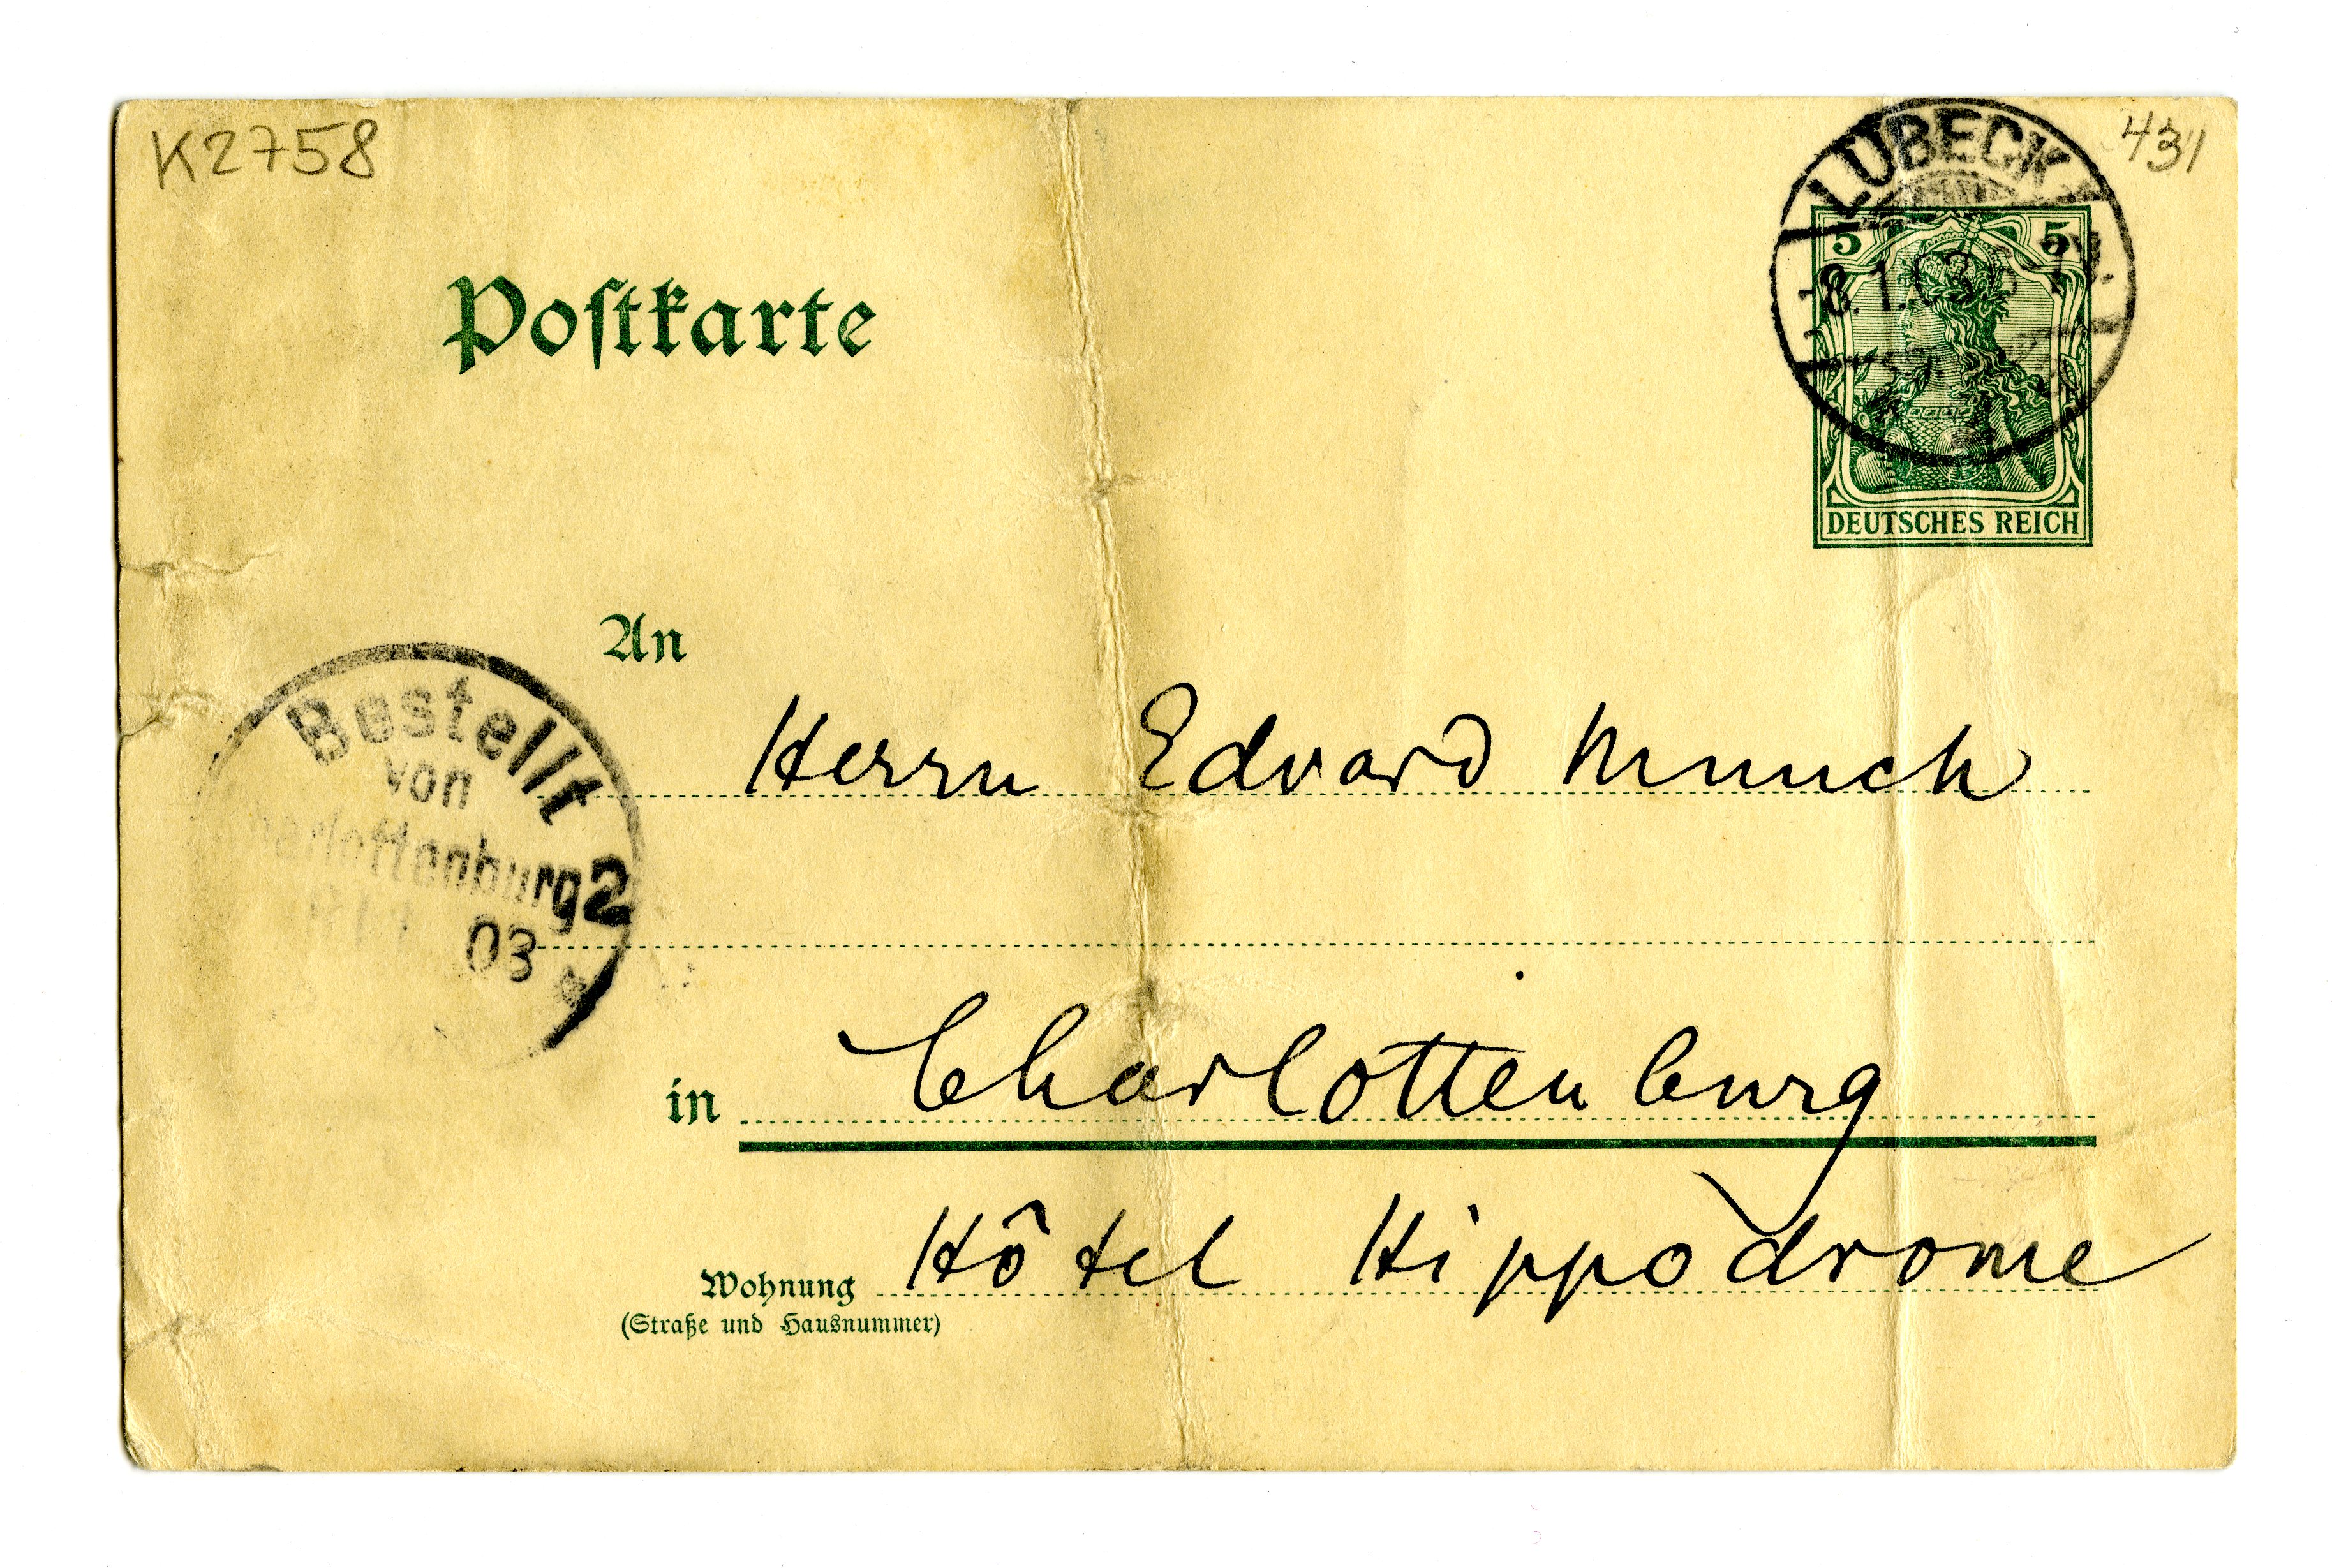 K2758
431
LÜBECK
8.1.03
5 5
DEUTSCHES REICH
Postkarte
An
Herrn Edvard Munch
Bestellt
von
Charlottenburg 2
03
in Charlottenburg
Wohnung Hôtel Hippòdrome
(Straße und Hausnummer)